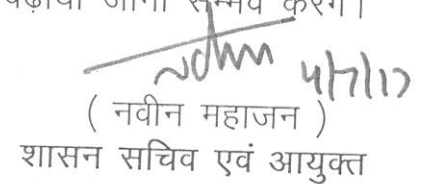 सम्भव करेंगे।
4/7/17
( नवीन महाजन )
शासन सचिव एवं आयुक्त